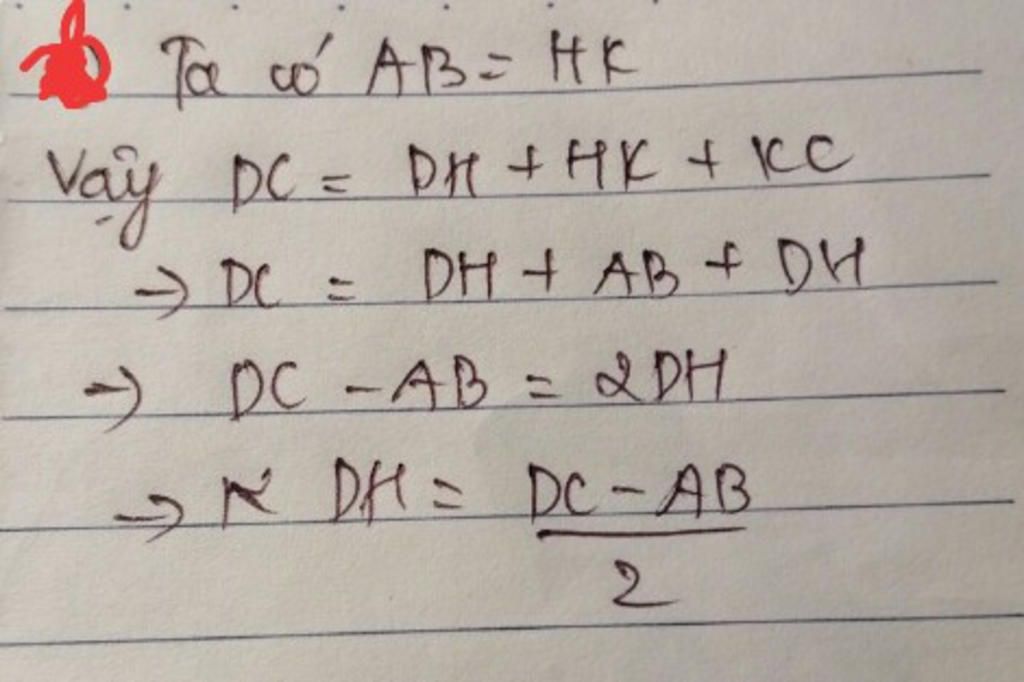 Ta có AB = HK
Vậy DC = DH + HK + KC
→ DC = DH + AB + DH
→ DC - AB = 2DH
→ DH = DC - AB
2